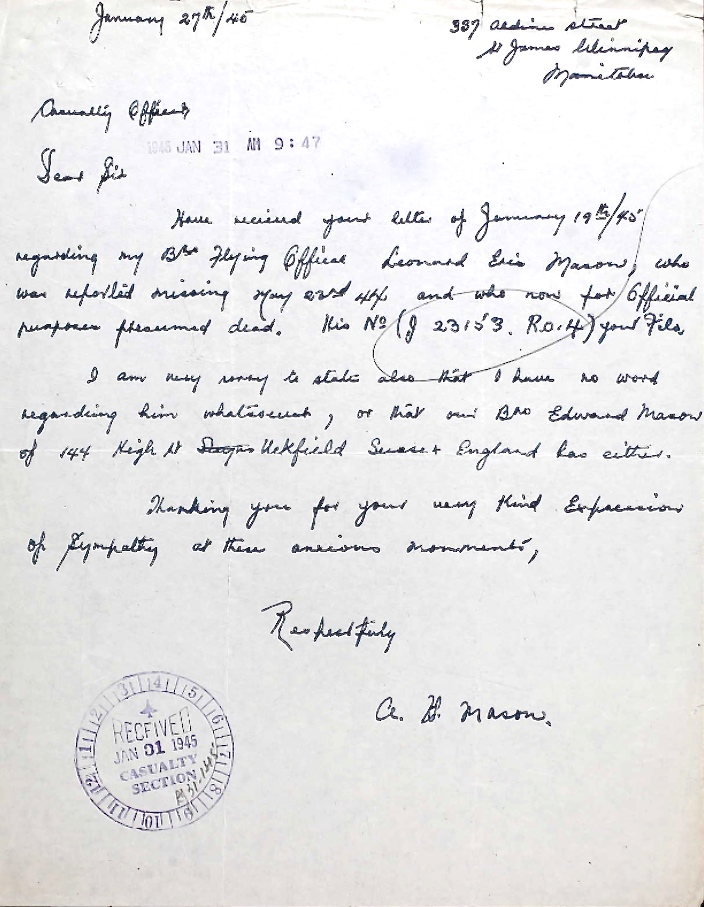 January 27th/45
337 Aldine street
St James Winnipeg
Manitoba
Casualty Officer
1945 JAN 31 AM 9:47
Dear Sir
Have recieved your letter of January 19th/45
regarding my Bro Flying Officer Leonard Eric Mason, who
was reported missing May 22nd 44 and who now for Official
purposes presumed dead. His No (J 23153. R.O.4) your File.
I am very sorry to state also that I have no word
regarding him whatsoever, or that our Bro Edward Mason
of 144 High St Uckfield Sussex England has either.
Thanking you for your very Kind Expression
of Sympathy at these anxious moments,
Respectfully
A. H. Mason.
1 2 3 4 5 6 7 8 9 10 11 12
RECEIVED
JAN 31 1945
CASUALTY
SECTION